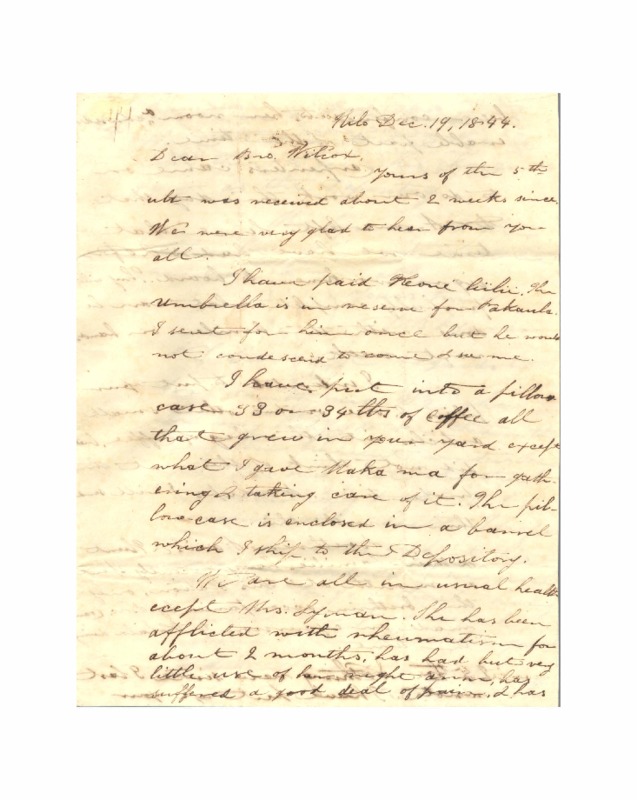 Hilo Dec. 19, 1844.
Dear Bro. Wilcox,
Yours of the 5th
ult was received about 2 weeks since.
We were very glad to hear from you
all.
I have paid Keoni . The
umbrella is in reserve for Pakaula.
I sent for him once but he would
not condescend to come & see me.
I have put into a pillow
case 33 or 34 lbs of coffee all
that grew in your yard except
what I gave Makama for gath-
ering & taking care of it. The pil-
low case is enclosed in a barrel
which I ship to the Depository.
We are all in usual health
ecept Mrs. Lyman. She has been
afflicted with rheumatism for
about 2 months, has had but very
little use of her right arm, has
suffered a good deal of pain, & has